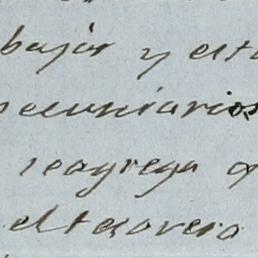 bajar y esta
pecuniarios
se agrega q
el tesorero